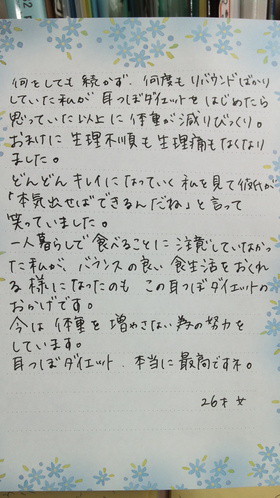 何をしても続かず、何度もリバウンドばかり
していた私が耳つぼダイエットをはじめたら
思っていた以上に体重が減りびっくり。
おまけに生理不順も生理痛もなくなり
ました。
どんどんキレイになっていく私を見て彼氏が
「本気出せばできるんだね」と言って
笑っていました。
一人暮らしで食べることに注意していなかっ
た私が、バランスの良い食生活をおくれ
る様になったのも この耳つぼダイエットの
おかげです。
今は体重を増やさない為の努力を
しています。
耳つぼダイエット、本当に最高ですネ。
26才 女